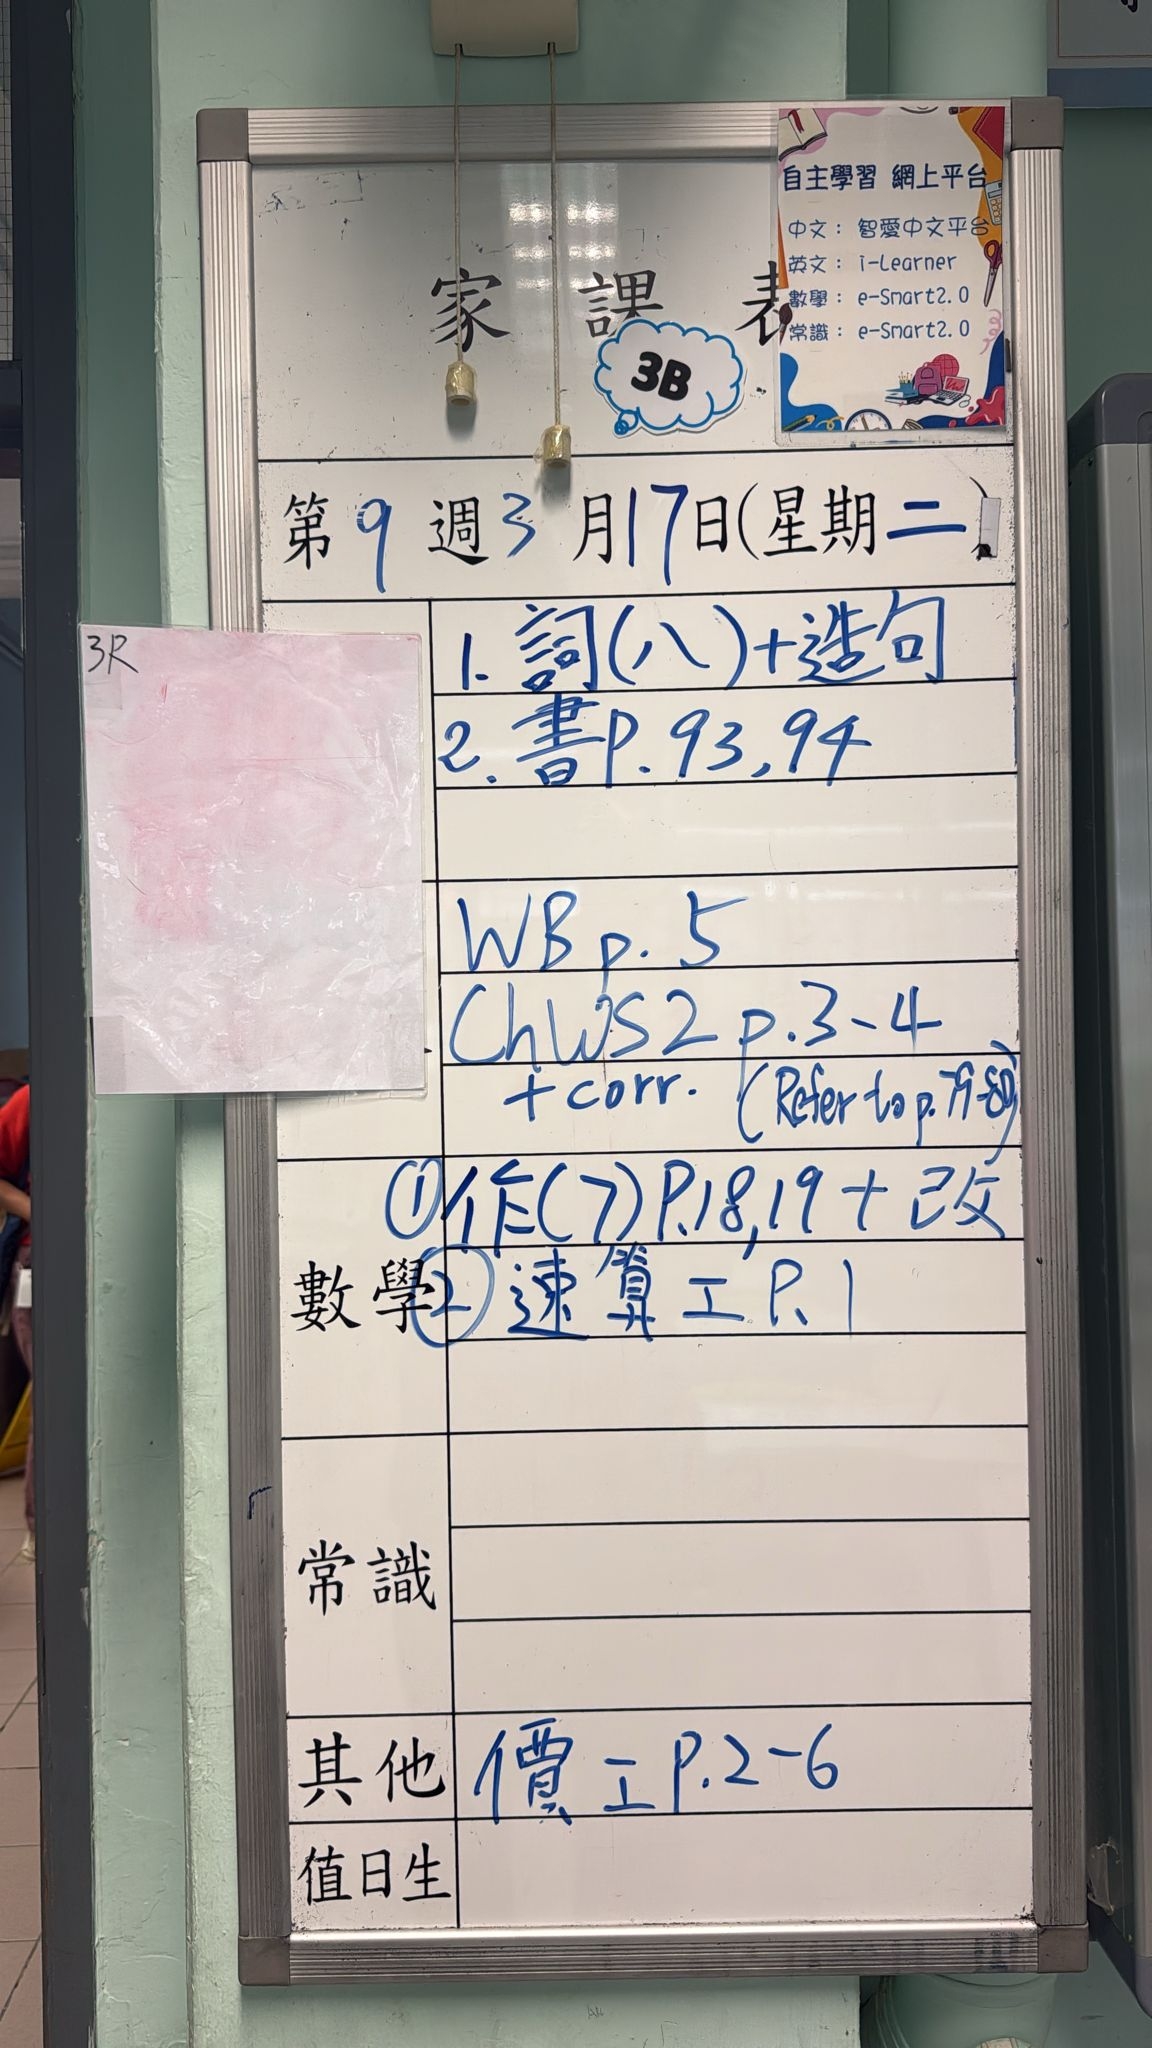 自主學習 網上平台
中文： 智愛中文平台
英文： i-Learner
數學： e-Smart2.0
常識： e-Smart2.0
家 課 表
3B
第9週3月17日(星期二)
3R
1. 詞(八)+造句
2. 書P.93,94
WB p. 5
ChWS2 p.3-4
+ corr. (Refer to p.79-80)
數學
①作(7)P.18,19+改
②速算工P.1
常識
其他 價工P.2-6
值日生